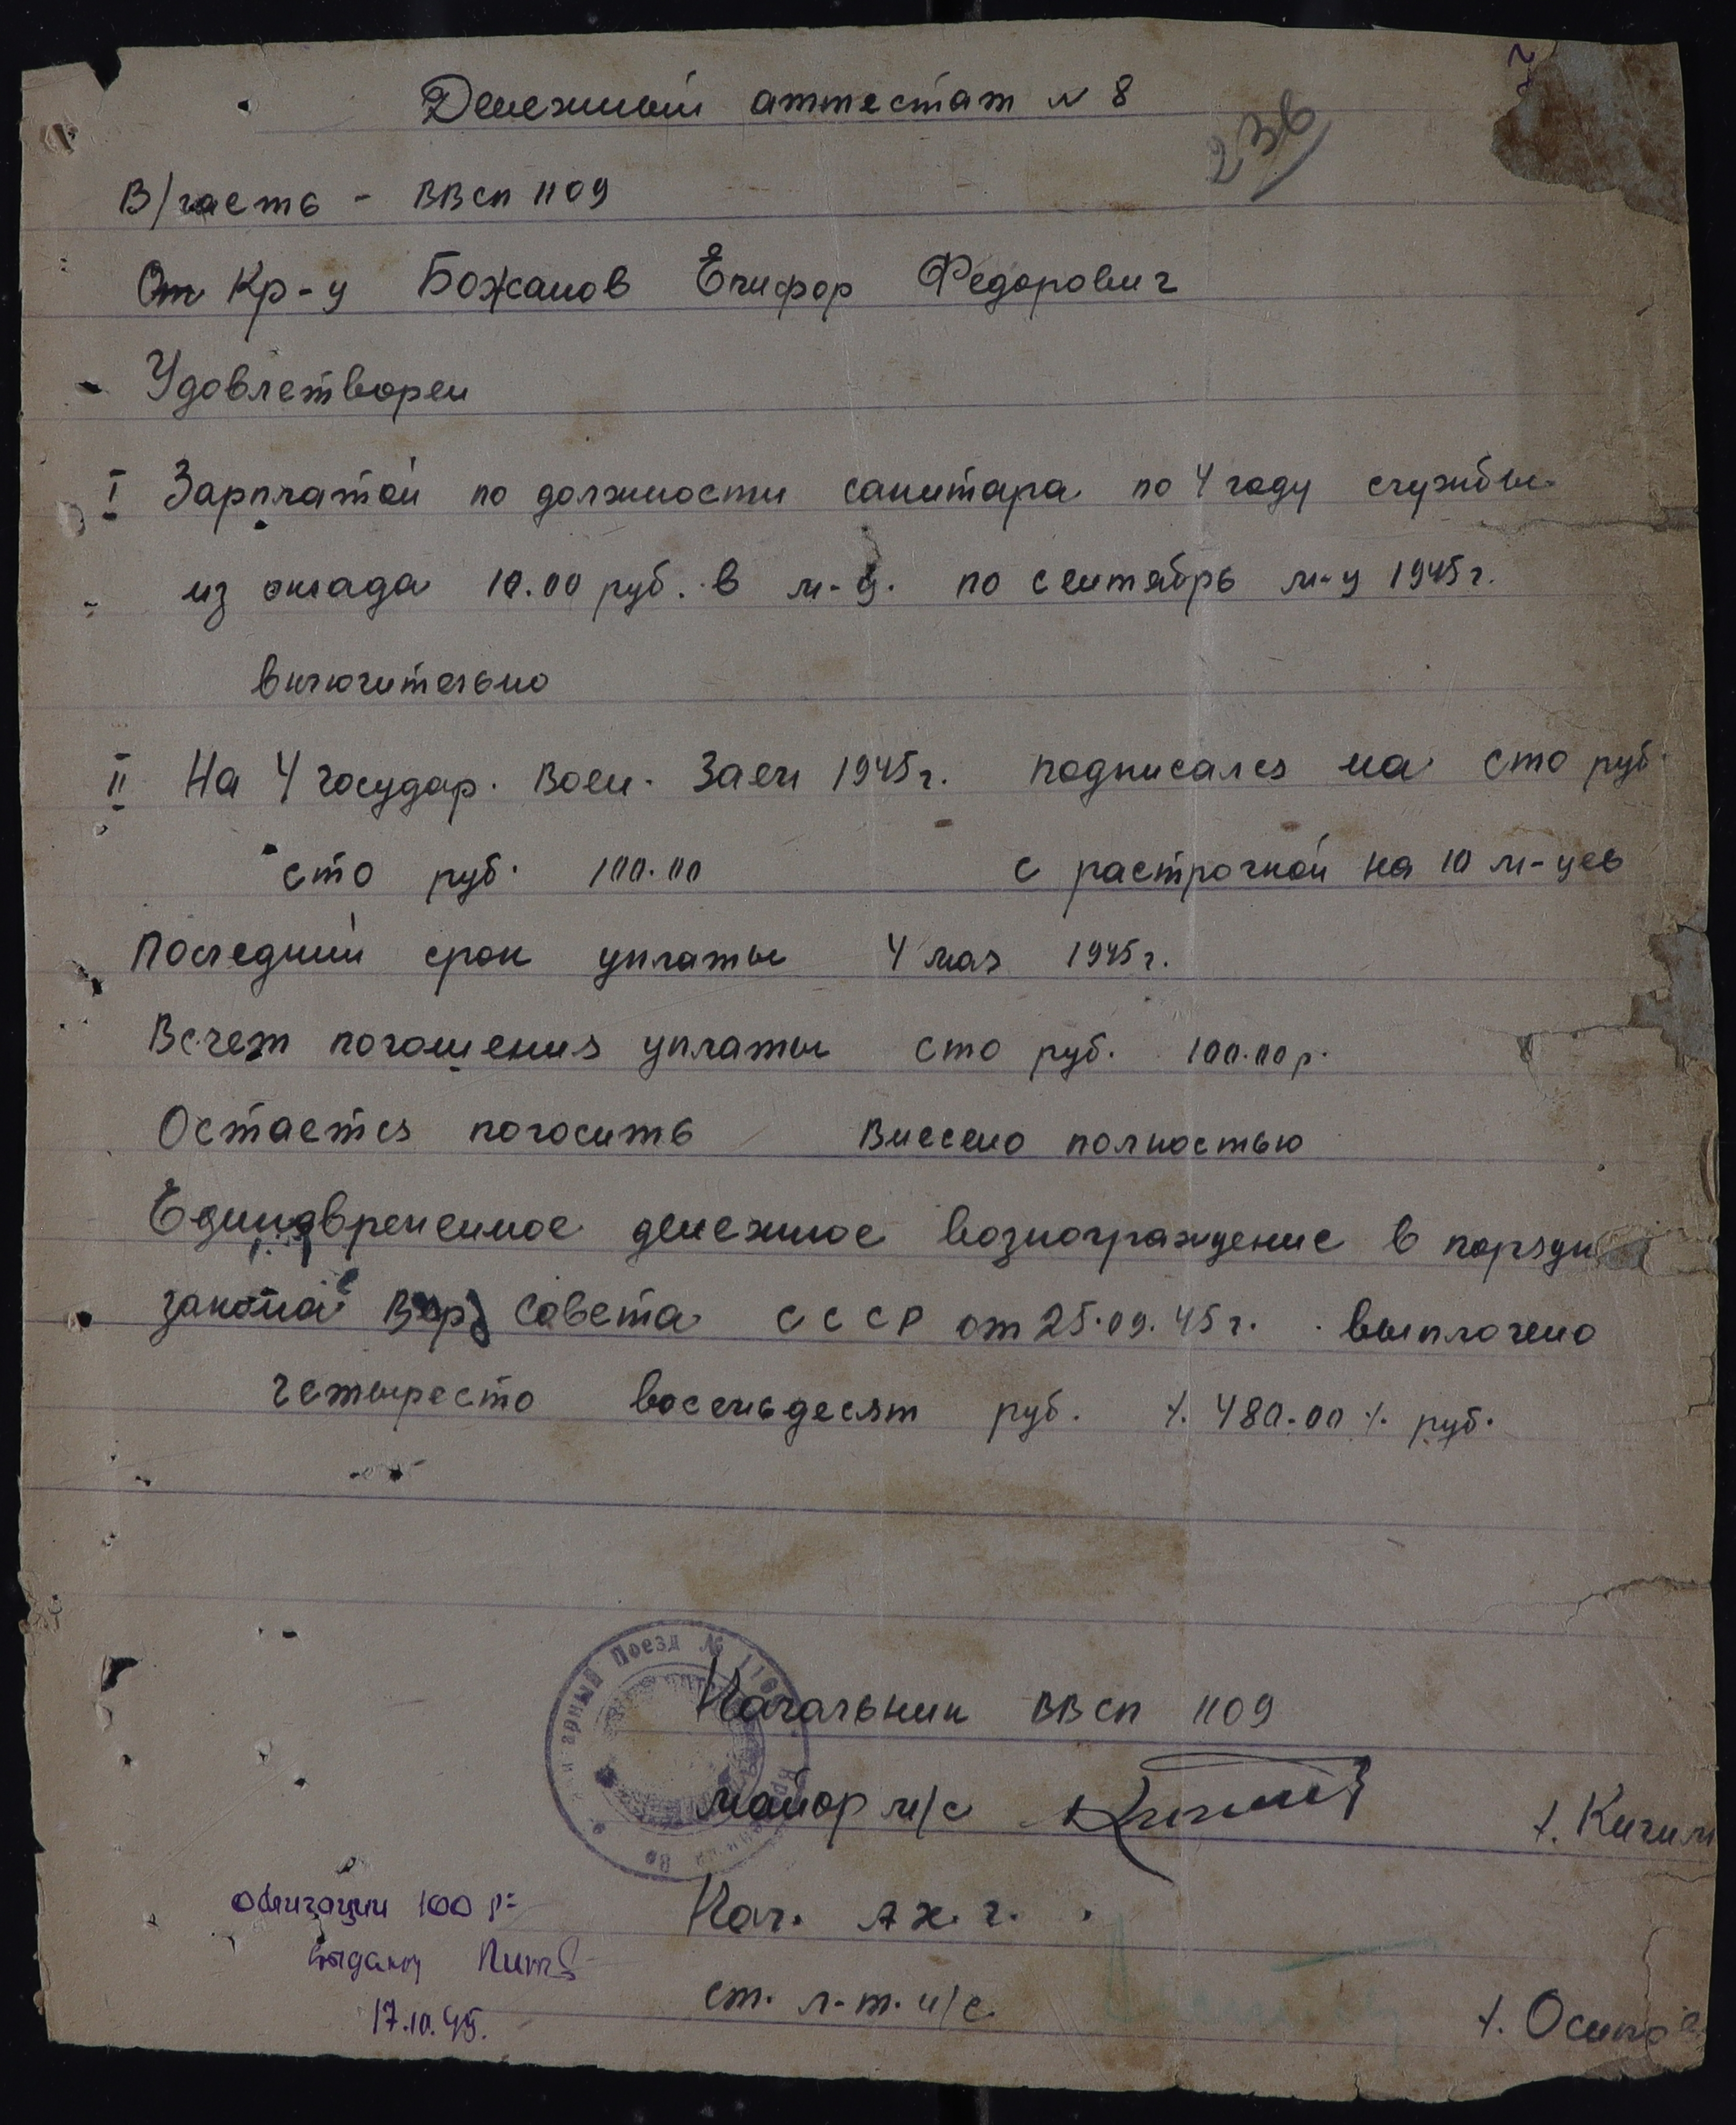 Денежный аттестат № 8
236
В/часть - ВВСП 1109
От Кр-у Божанов Епифор Федорович
Удовлетворен
I Зарплатой по должности санитара по 4 году службы
из оклада 10.00 руб. в м-ц. по сентябрь м-ц 1945 г.
включительно
II На 4 Государ. Воен. Заем 1945 г. подписался на сто руб.
сто руб. 100.00 с растрочкой на 10 м-цев
Последний срок уплаты 4 мая 1945 г.
Всчет погошения уплаты сто руб. 100.00 р.
Остается погосить Внесено полностью
Единовременное денежное вознограждение в порядк
закона Верх Совета СССР от 25.09.45 г. выплочено
четыресто восемьдесят руб. ·/. 480.00 ·/. руб.
арный Поезд № 110
Начальник ВВСП 1109
майор м/с /. Кичим
Облигации 100 р=
Нач. А.Х.Ч.
выдany
17.10.45.
ст. л-т. и/с. /. Осипов